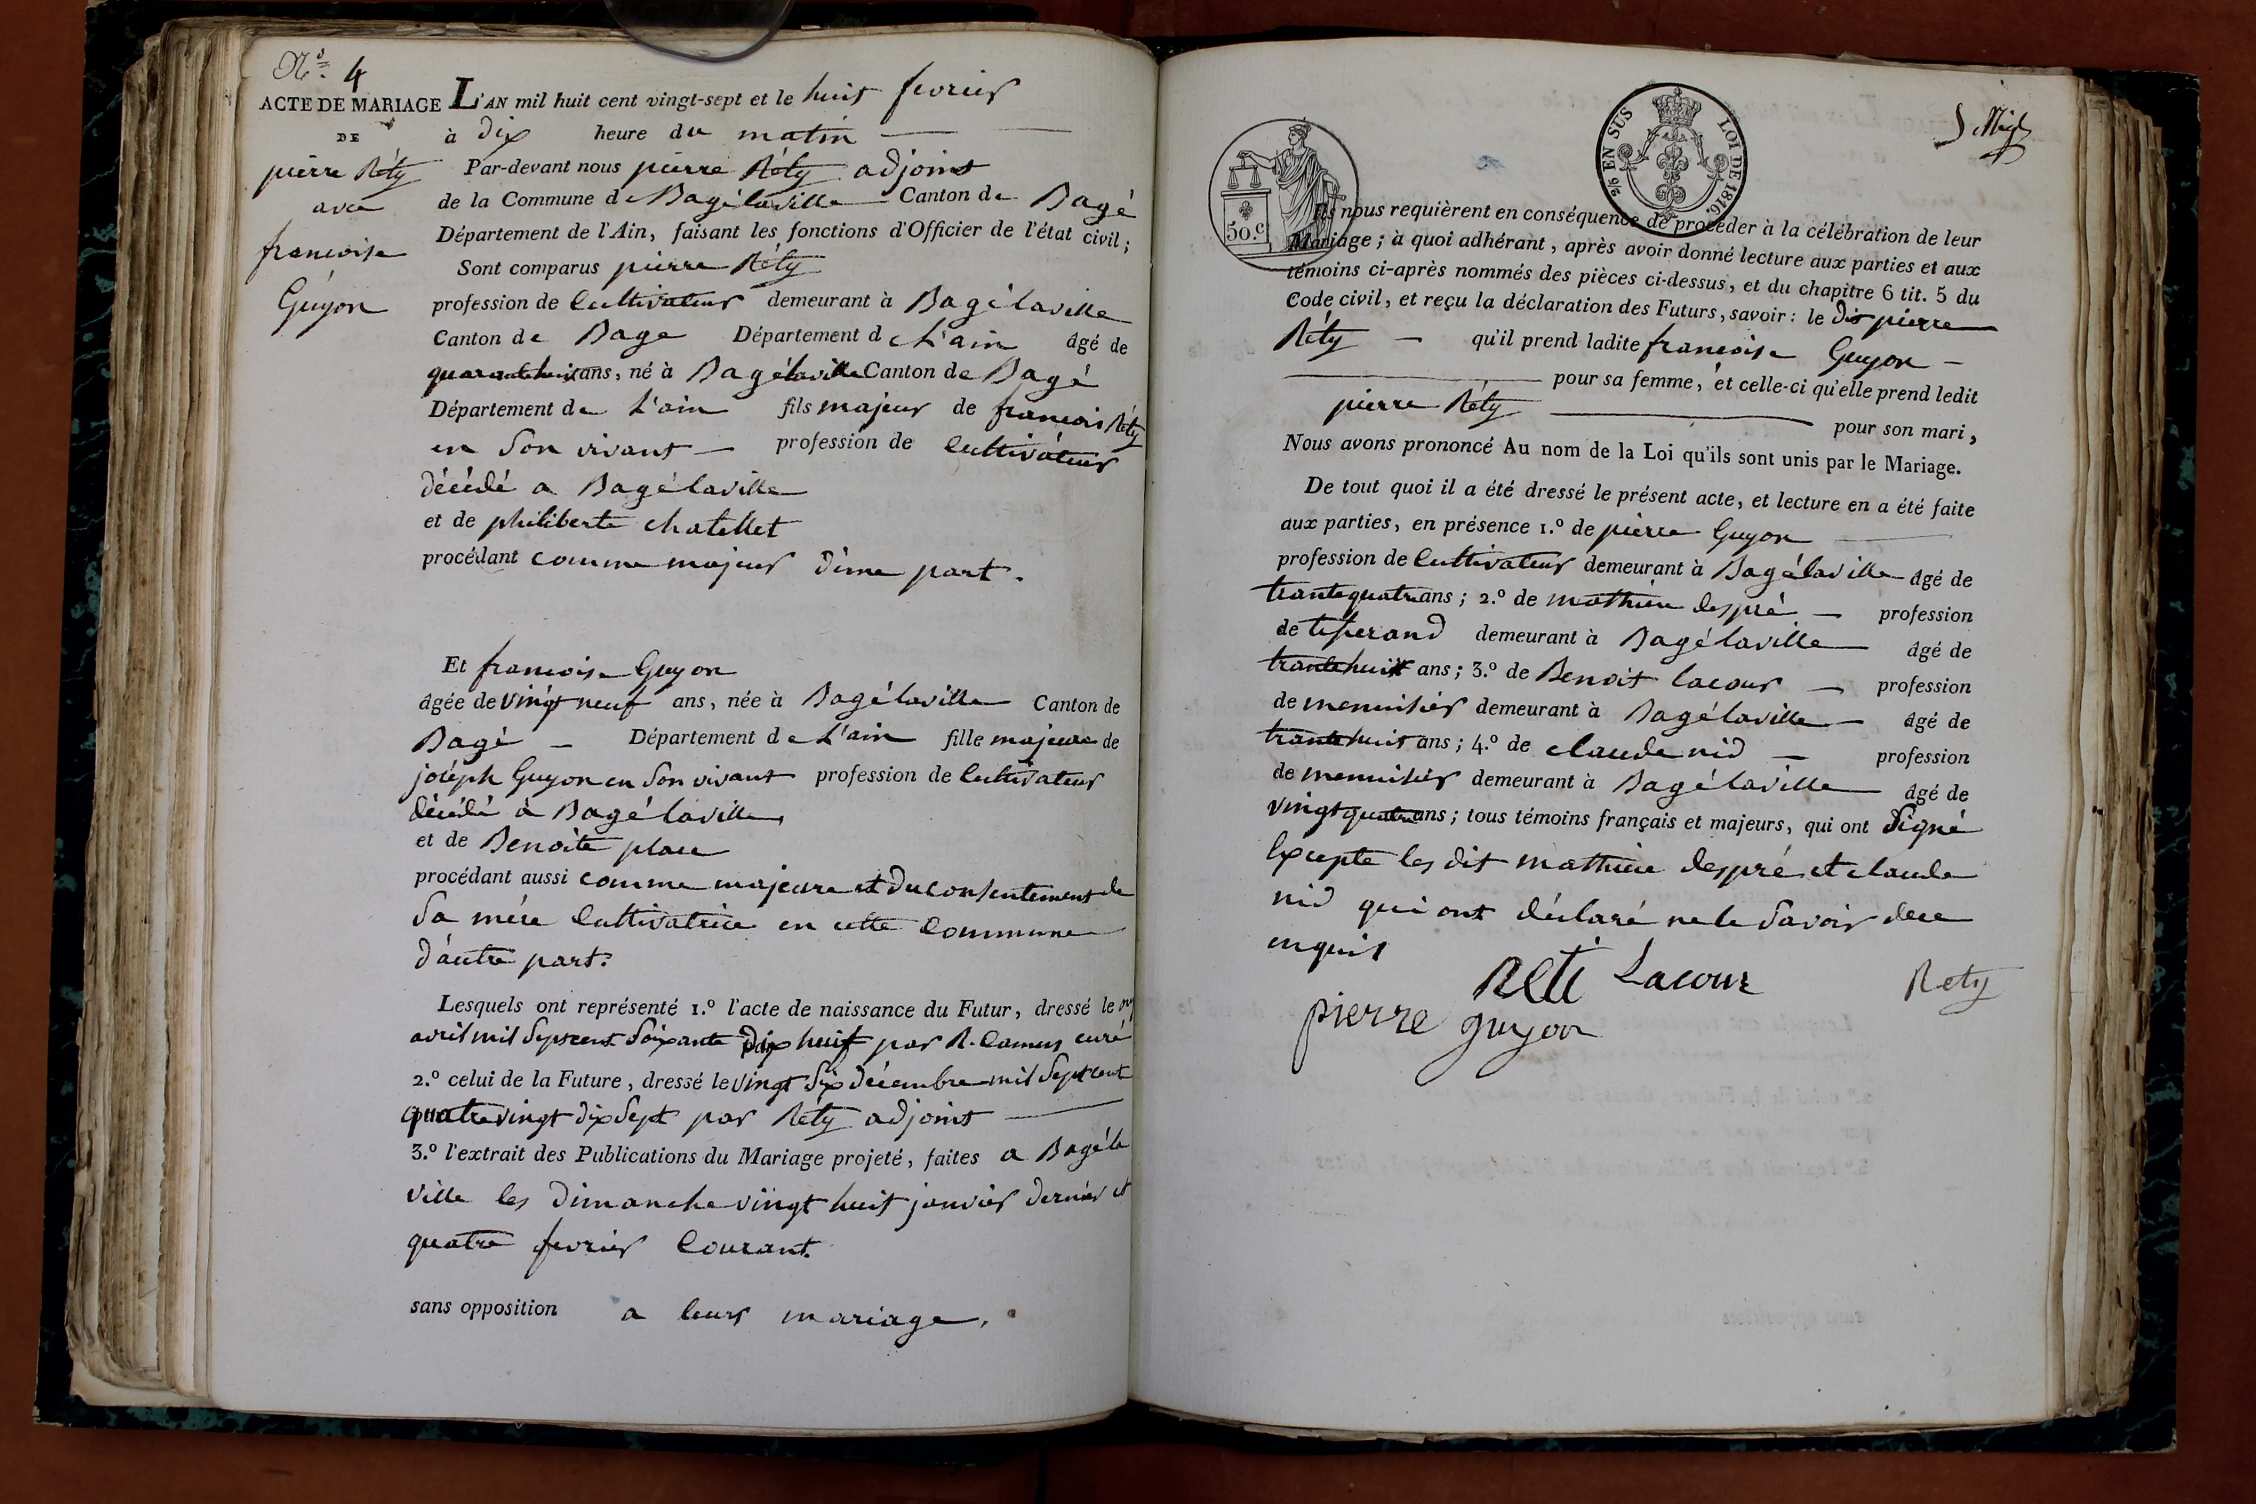 N.º 4
ACTE DE MARIAGE
DE
pierre Réty
avec
francoise
Guyon
L'AN mil huit cent vingt-sept et le huit fevrier
à dix heure du matin
Par-devant nous pierre Réty adjoint
de la Commune de Bagélaville Canton de Bagé
Département de l'Ain, faisant les fonctions d'Officier de l'état civil;
Sont comparus pierre Réty
profession de Cultivateur demeurant à Bagélaville
Canton de Bage Département de L'ain âgé de
quarantehuit ans, né à Bagélaville Canton de Bagé
Département de L'ain fils majeur de francois Réty
en son vivant profession de Cultivateur
décédé a Bagélaville
et de philiberte chatellet
procédant comme majeur d'une part.
Et francoise Guyon
âgée de vingt neuf ans, née à Bagélaville Canton de
Bagé Département de L'ain fille majeure de
joséph Guyon en son vivant profession de Cultivateur
décédé à Bagélaville
et de Benoite place
procédant aussi comme majeure et du consentement de
sa mére Cultivatrice en cette Commune
d'autre part.
Lesquels ont représenté 1.º l'acte de naissance du Futur, dressé le
avril mil septcent soixante dix huit par R. Camus curé
2.º celui de la Future, dressé le vingt six décembre mil septcent
quatrevingt dixsept par Réty adjoint
3.º l'extrait des Publications du Mariage projeté, faites a Bagéla
ville les dimanche vingt huit janvier dernier et
quatre fevrier Courant.
sans opposition a leurs mariage.
50.C
2/6 EN SUS LOI DE 1816.
Ils nous requièrent en conséquence de procéder à la célébration de leur
Mariage; à quoi adhérant, après avoir donné lecture aux parties et aux
témoins ci-après nommés des pièces ci-dessus, et du chapitre 6 tit. 5 du
Code civil, et reçu la déclaration des Futurs, savoir: le dit pierre
Réty qu'il prend ladite francoise Guyon
pour sa femme, et celle-ci qu'elle prend ledit
pierre Réty pour son mari,
Nous avons prononcé Au nom de la Loi qu'ils sont unis par le Mariage.
De tout quoi il a été dressé le présent acte, et lecture en a été faite
aux parties, en présence 1.º de pierre Guyon
profession de Cultivateur demeurant à Bagélaville âgé de
trantequatre ans; 2.º de mathieu despré profession
de tisserand demeurant à Bagélaville âgé de
trantehuit ans; 3.º de Benoit lacour profession
de menuisier demeurant à Bagélaville âgé de
trantehuit ans; 4.º de claude nid profession
de menuisier demeurant à Bagélaville âgé de
vingtquatre ans; tous témoins français et majeurs, qui ont signé
Excepte les dit mathieu despré et claude
nid qui ont déclaré ne le savoir de ce
enquis
Reti Lacour Rety
pierre guyon